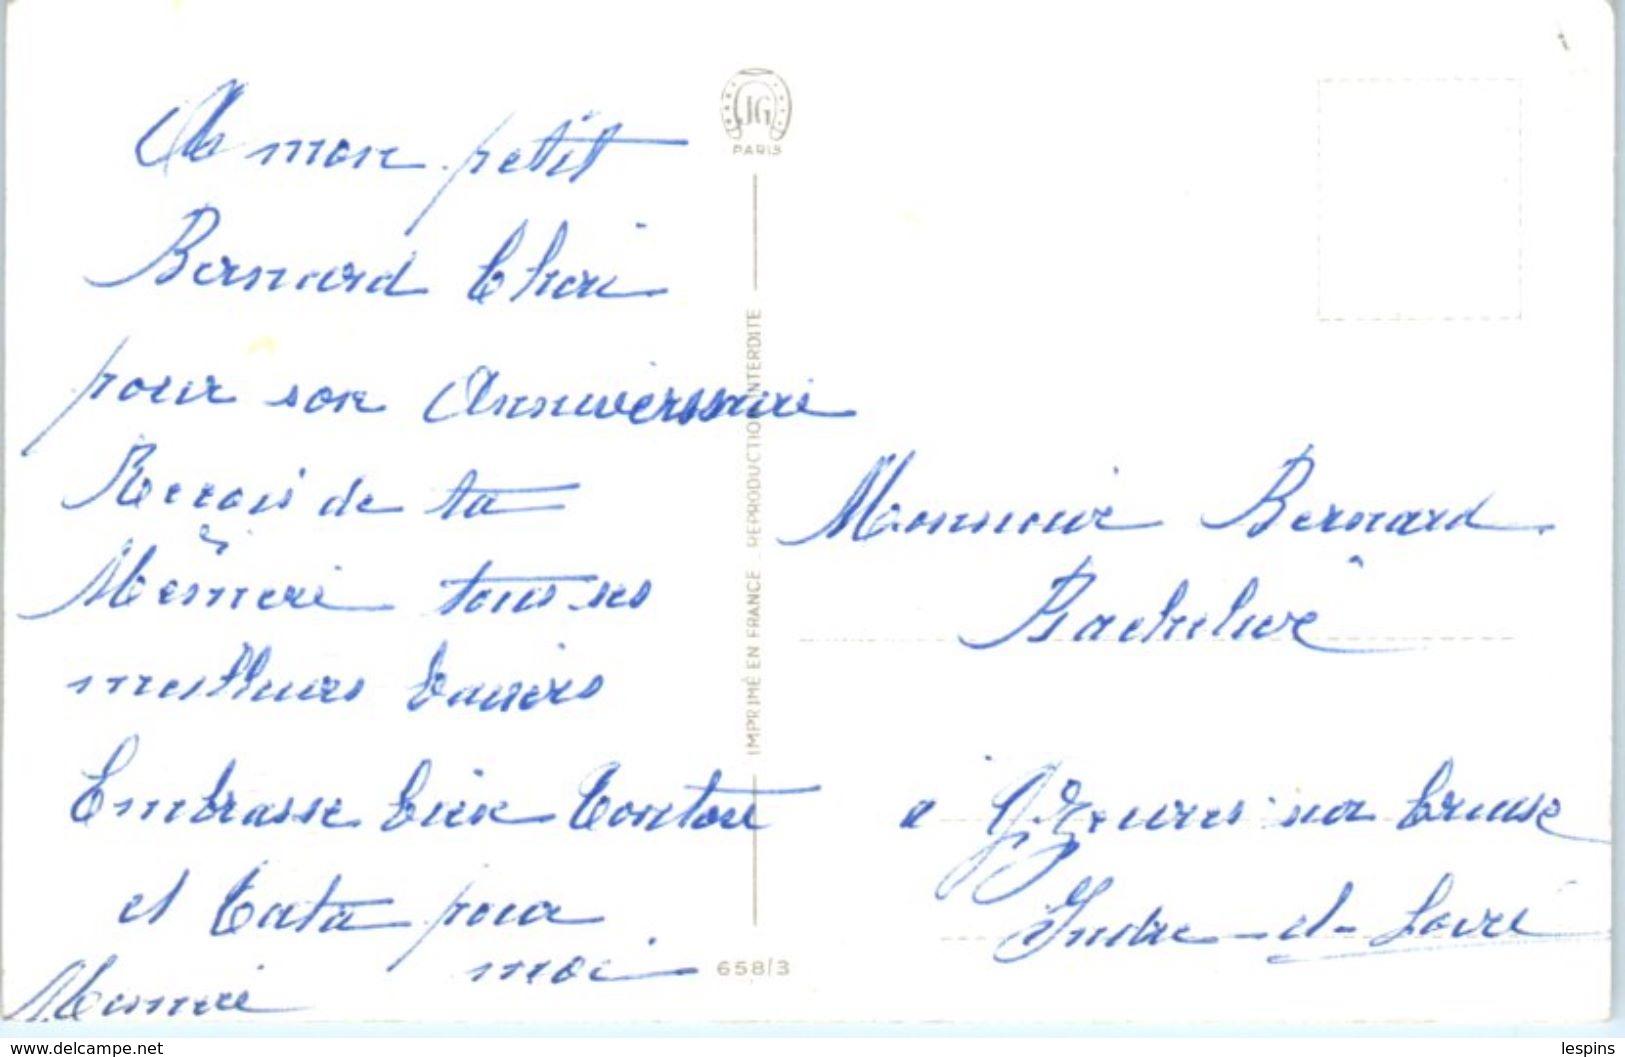 A mon petit
Bernard Chéri
pour son Anniversaire
Recois de ta
Mémére tous ses
meilleurs baisers
Embrasse bien Tonton
et Tata pour
moi
Mémére
JG
PARIS
IMPRIMÉ EN FRANCE _ REPRODUCTION INTERDITE
658/3
Monsieur Bernard
à Yzeures sur Creuse
Indre-et-Loire
www.delcampe.net
lespins